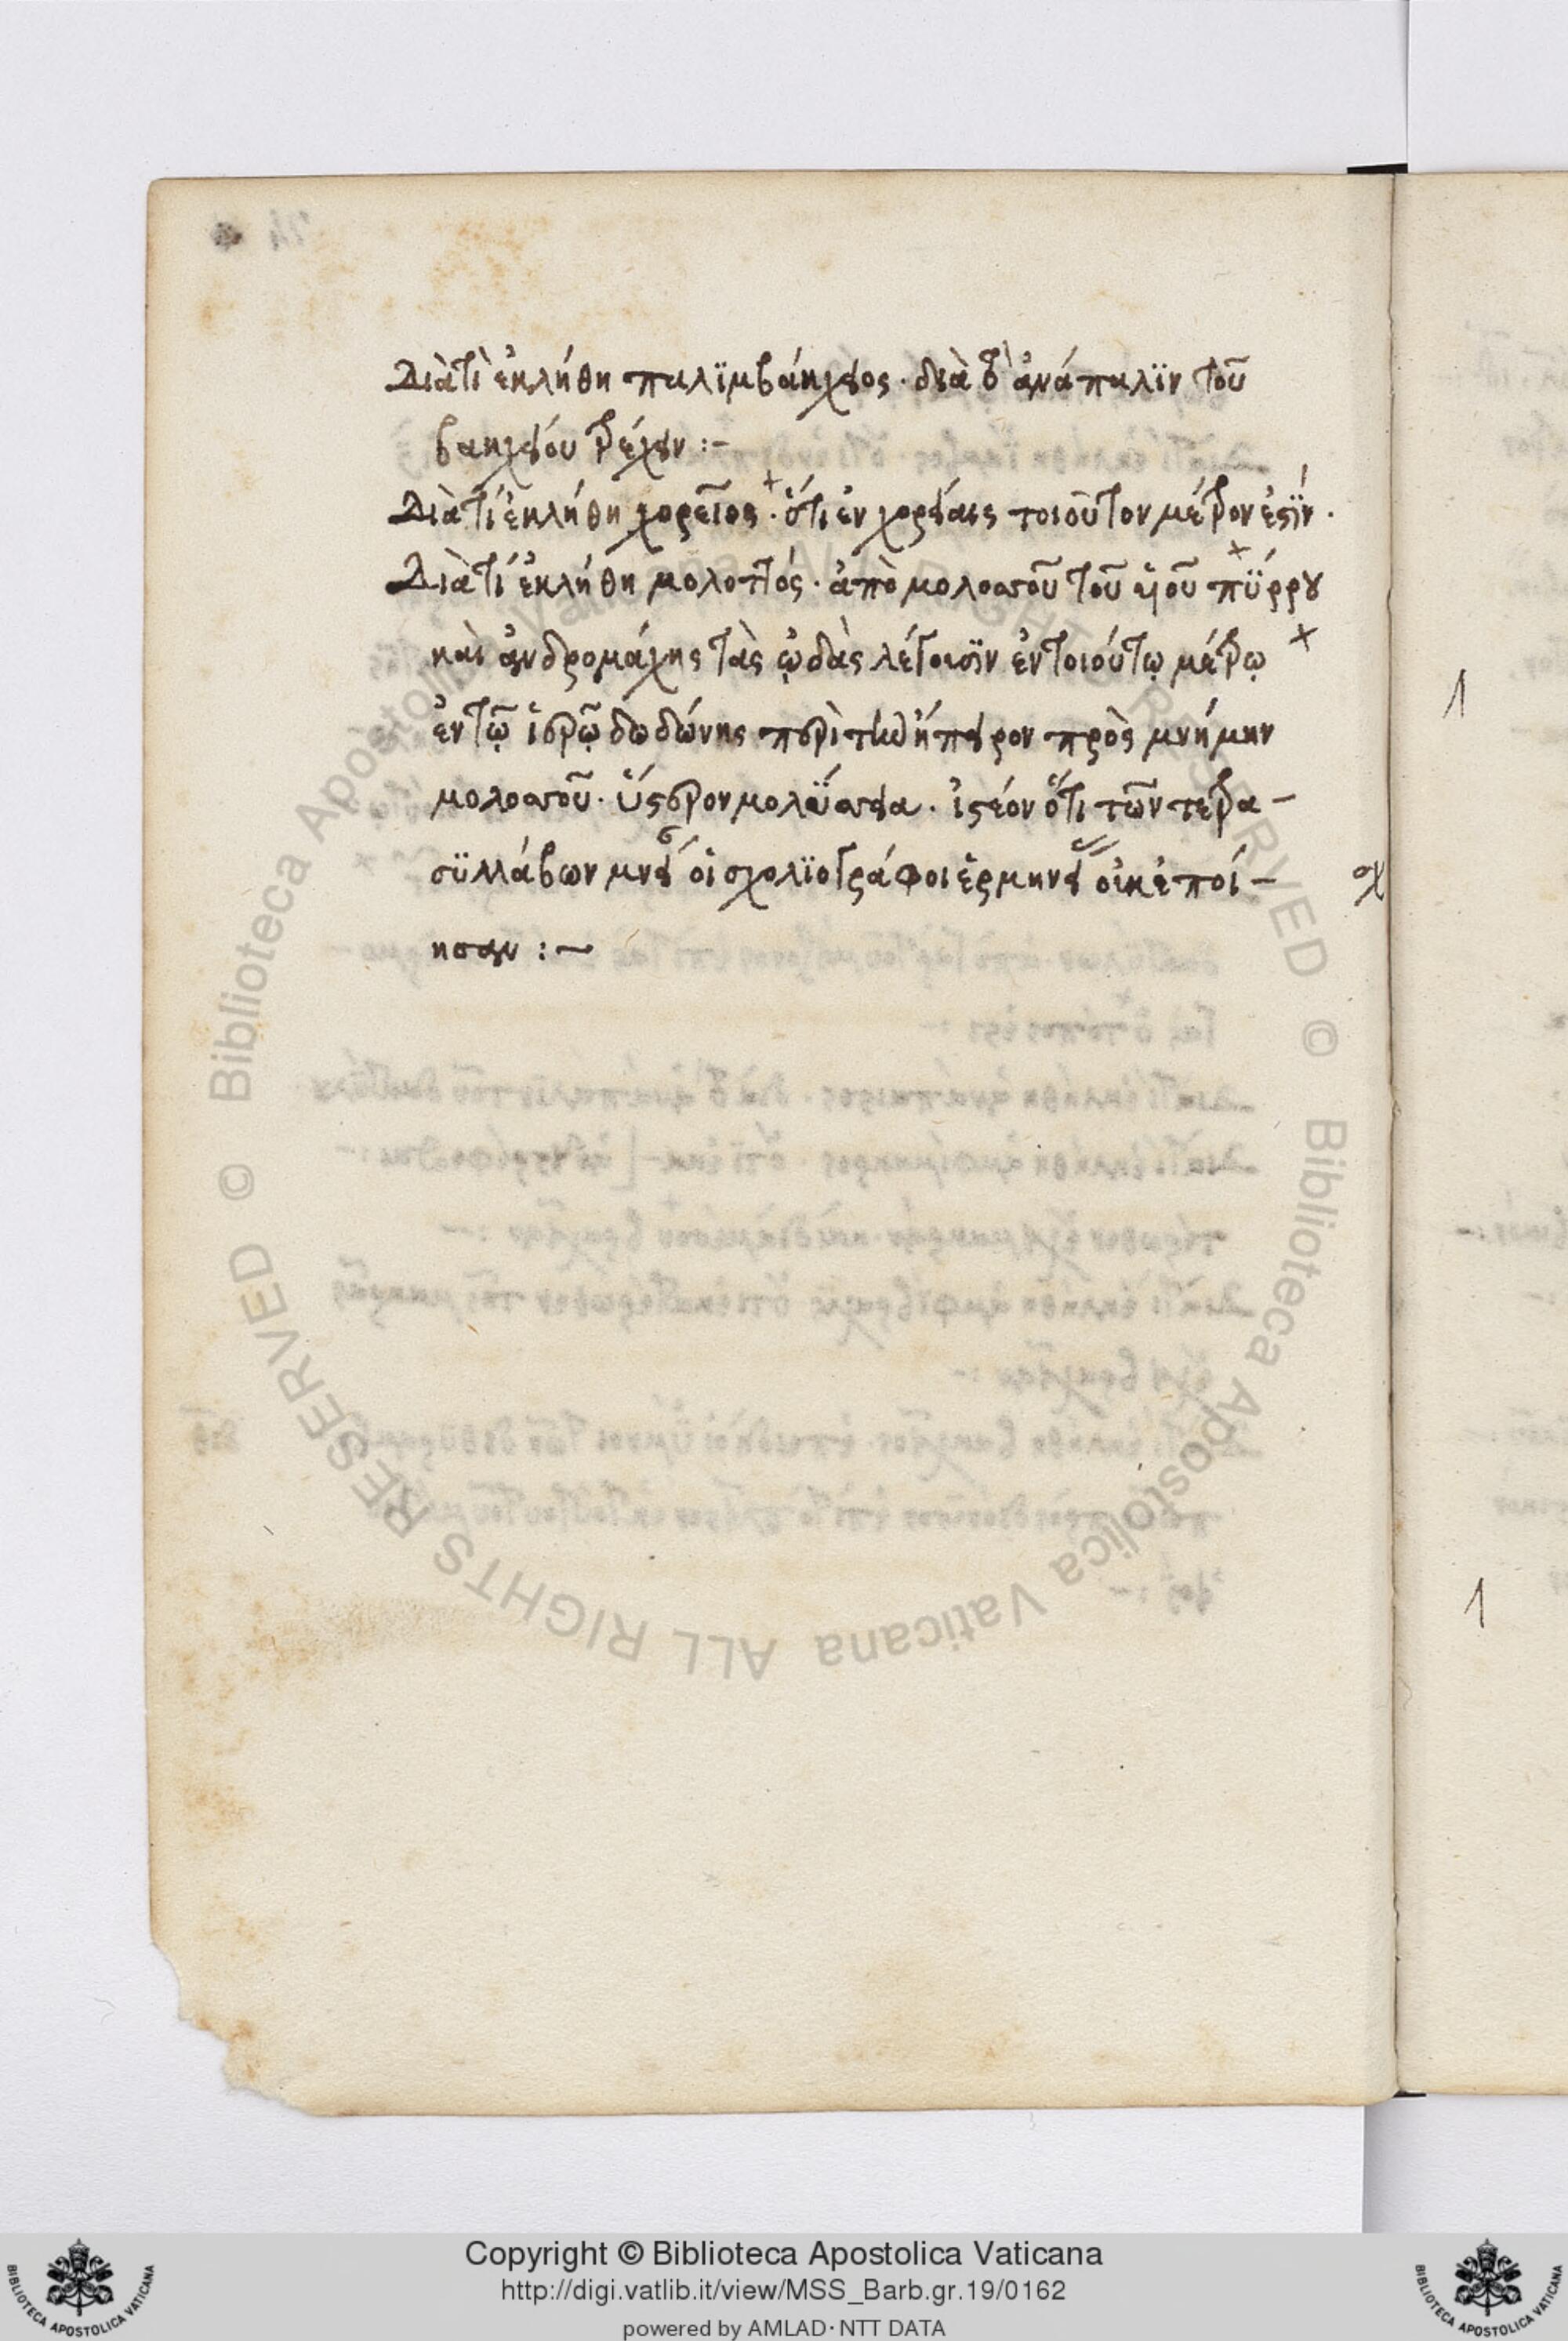 Διὰτὶ ἐκλήθη παλϊμβάκχειος · διὰ τὸ ἀνάπαλϊν τοῦ
βακχείου τρέχειν :-
Διὰτί ἐκλήθη χορεῖος · ὅτι ἐν χορείαις τοιοῦτον μέτρον ἐστΐν ·
Διὰτί ἐκλήθη μολοττός · ἀπὸ μολοσσοῦ τοῦ ὑιοῦ πΰρρου
καὶ ἀνδρομάχης τὰς ᾠδὰς λέγουσϊν ἐν τοιούτῳ μέτρῳ
ἐν τῷ ἱερῷ δωδώνης περὶ τὴν ἤπειρον πρὸς μνήμην
μολοσσοῦ · ὕστερον · ἰστέον ὅτι τῶν τετρα-
σϋλλάβων οἱ σχολϊογράφοι οὐκ ἐποί-
ησαν :-
Copyright © Biblioteca Apostolica Vaticana
http://digi.vatlib.it/view/MSS_Barb.gr.19/0162
powered by AMLAD · NTT DATA
© Biblioteca Apostolica Vaticana ALL RIGHTS RESERVED © Biblioteca Apostolica Vaticana ALL RIGHTS RESERVED
BIBLIOTECA APOSTOLICA VATICANA
BIBLIOTECA APOSTOLICA VATICANA